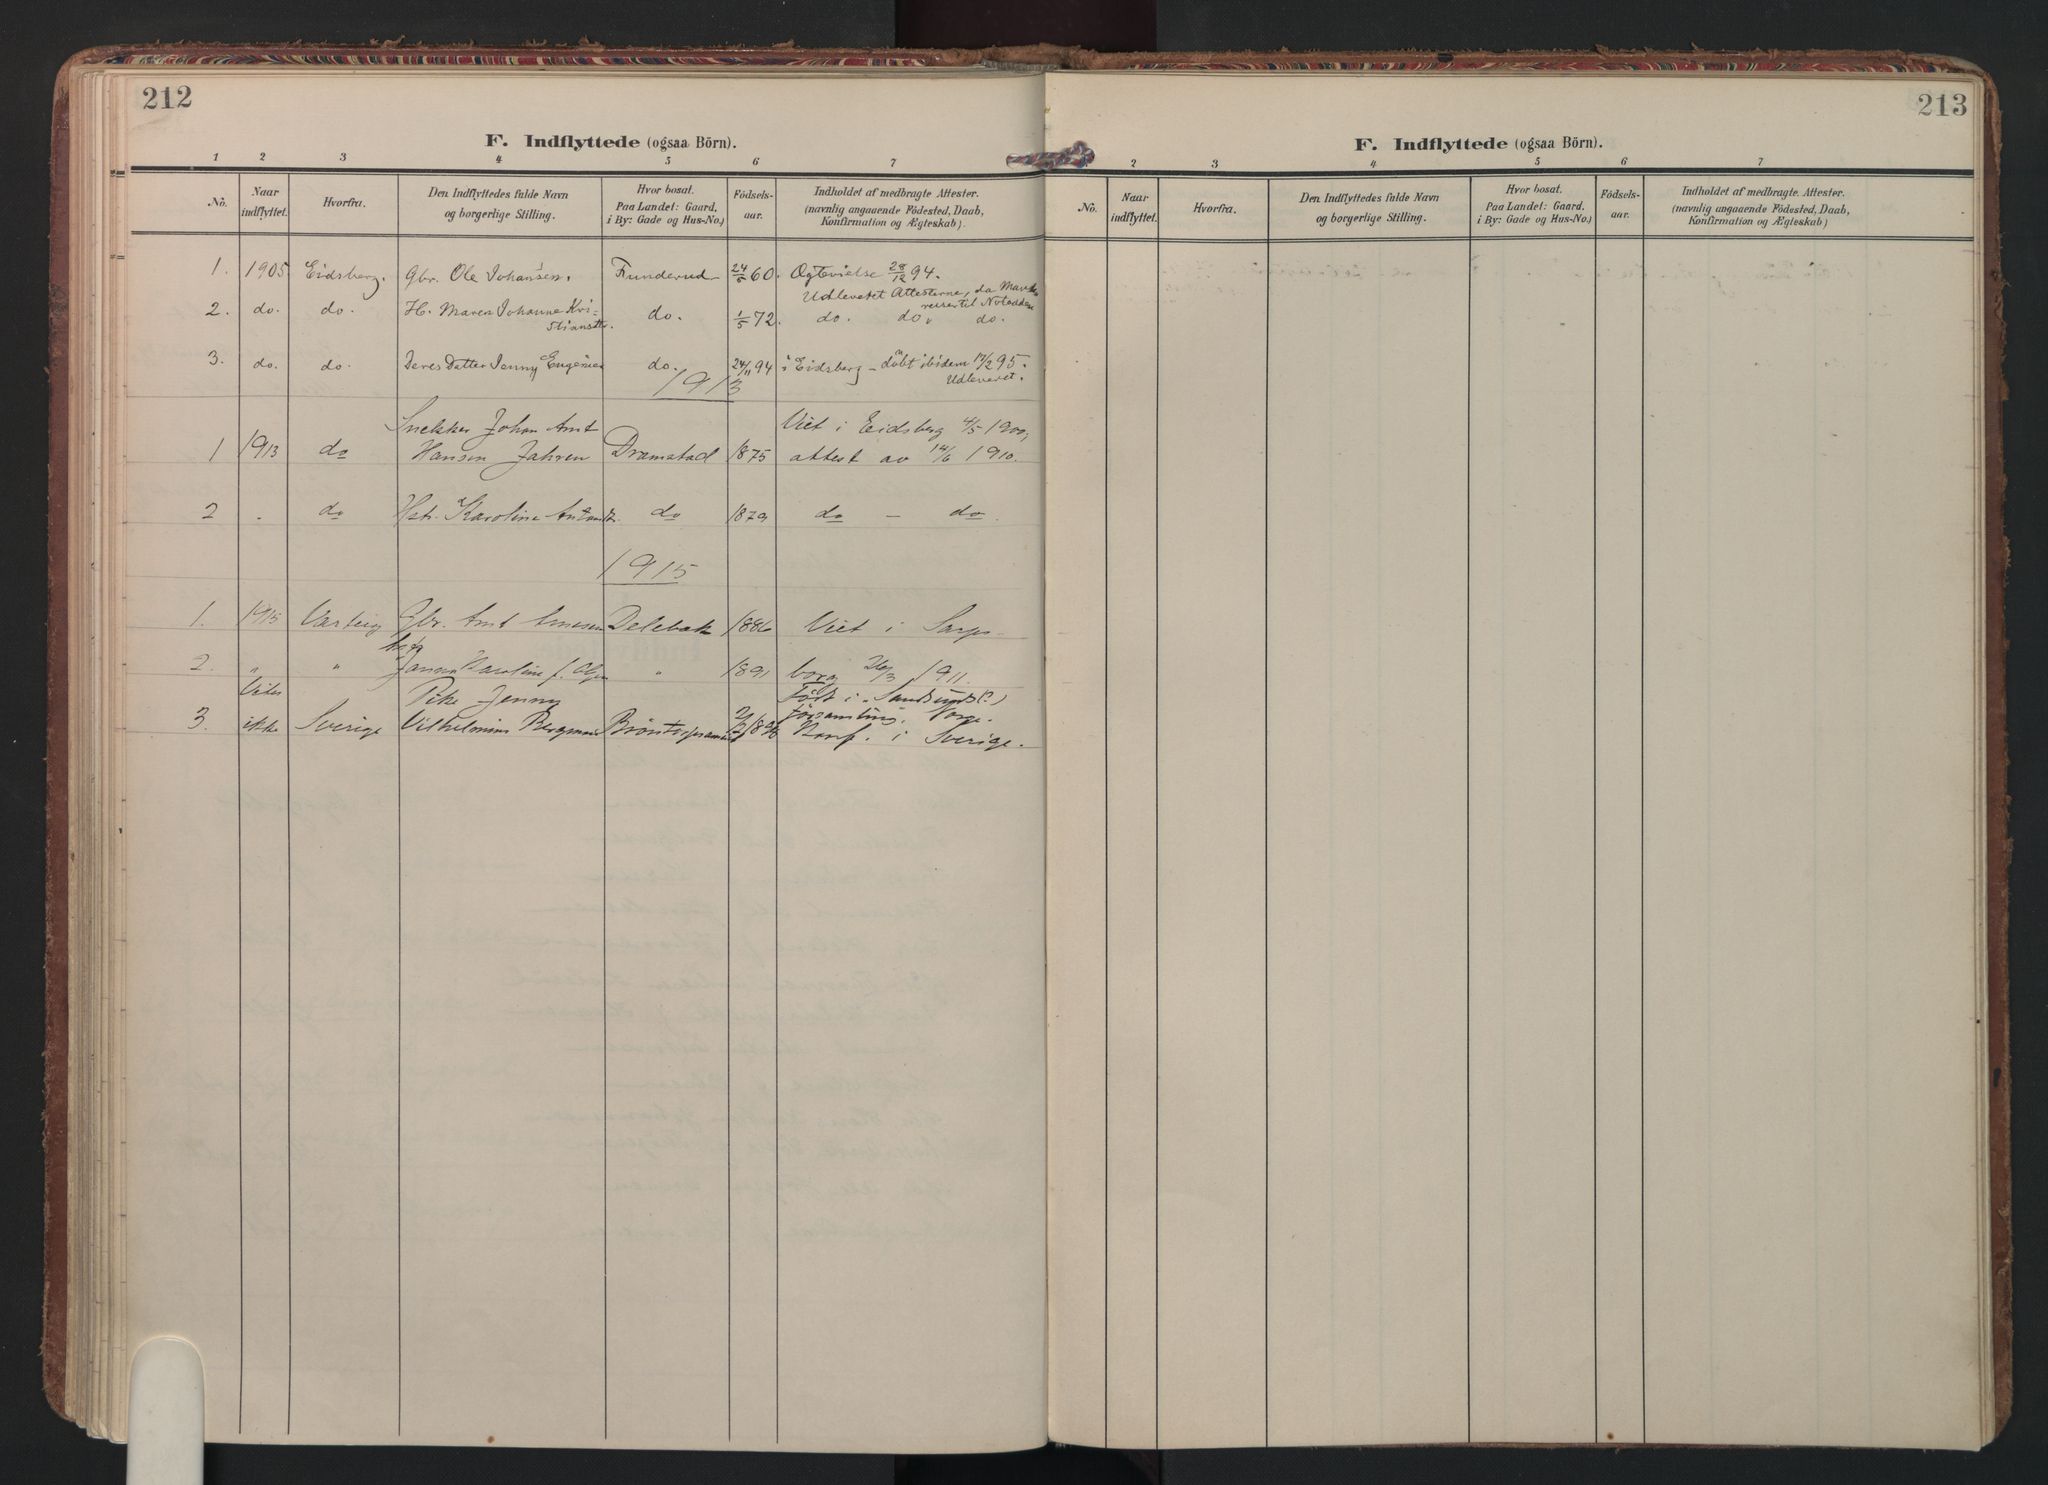 212
F. Indflyttede (ogsaa Börn).
1 2 3 4 5 6 7
No. Naar indflyttet. Hvorfra. Den Indflyttedes fulde Navn og borgerlige Stilling. Hvor bosat. Paa Landet: Gaard. i By: Gade og Hus-No.) Födsels-aar. Indholdet af medbragte Attester. (navnlig angaaende Födested, Daab, Konfirmation og Ægteskab).
1. 1905 Eidsberg. Gbr. Ole Johansen. Funderud 24/5 60. Ogtevielse 28/12 94.
Udleveret Attesterne, da
reiser til Notodden
2. do. do. H. Maren Johanne Kri-
do. 1/5 72. do. do. do.
3. do. do. Deres Datter Jenny Eugenie do. 24/11 94 i Eidsberg – döbt ibidem 17/2 95.
Udleveret.
1913
Snekker Johan Amt Viet i Eidsberg 4/5 1900,
1 1913 do Hansen Jahren Dramstad 1875 attest av 14/6 1910.
2 . do Hst. Karoline do 1879 do – do.
1915
1. 1915 Varteig Gbr. Delebæk 1886 Viet i Sarps-
2. " " Karoline f. Olsen " 1891 borg 26/3 1911.
Vites Pike Jenny Född i Sandsund(?)
3. ikke Sverige Vilhelmine Bergman församling, Norge.
Konf. i Sverige.
213
F. Indflyttede (ogsaa Börn).
2 3 4 5 6 7
No. Naar indflyttet. Hvorfra. Den Indflyttedes fulde Navn og borgerlige Stilling. Hvor bosat. Paa Landet: Gaard. i By: Gade og Hus-No.) Födsels-aar. Indholdet af medbragte Attester. (navnlig angaaende Födested, Daab, Konfirmation og Ægteskab)